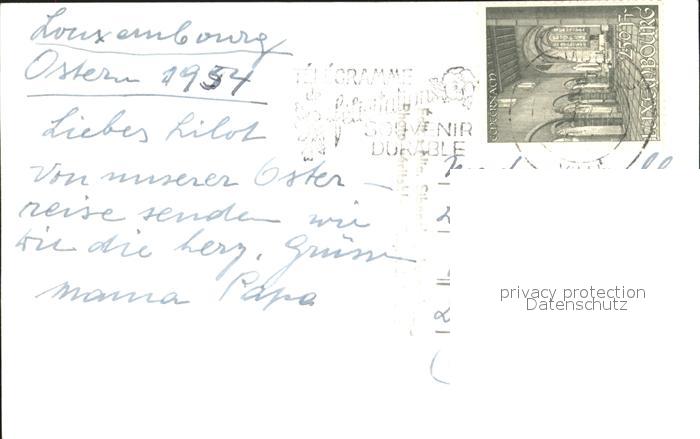 Louxembourg
Ostern 1954
Liebes Lilot
Von unserer Oster-
reise senden wir
Dir die herz. Grüsse
Mama Papa
TÉLÉGRAMME
SOUVENIR
DURABLE
2F50
LUXEMBOURG
privacy protection
Datenschutz